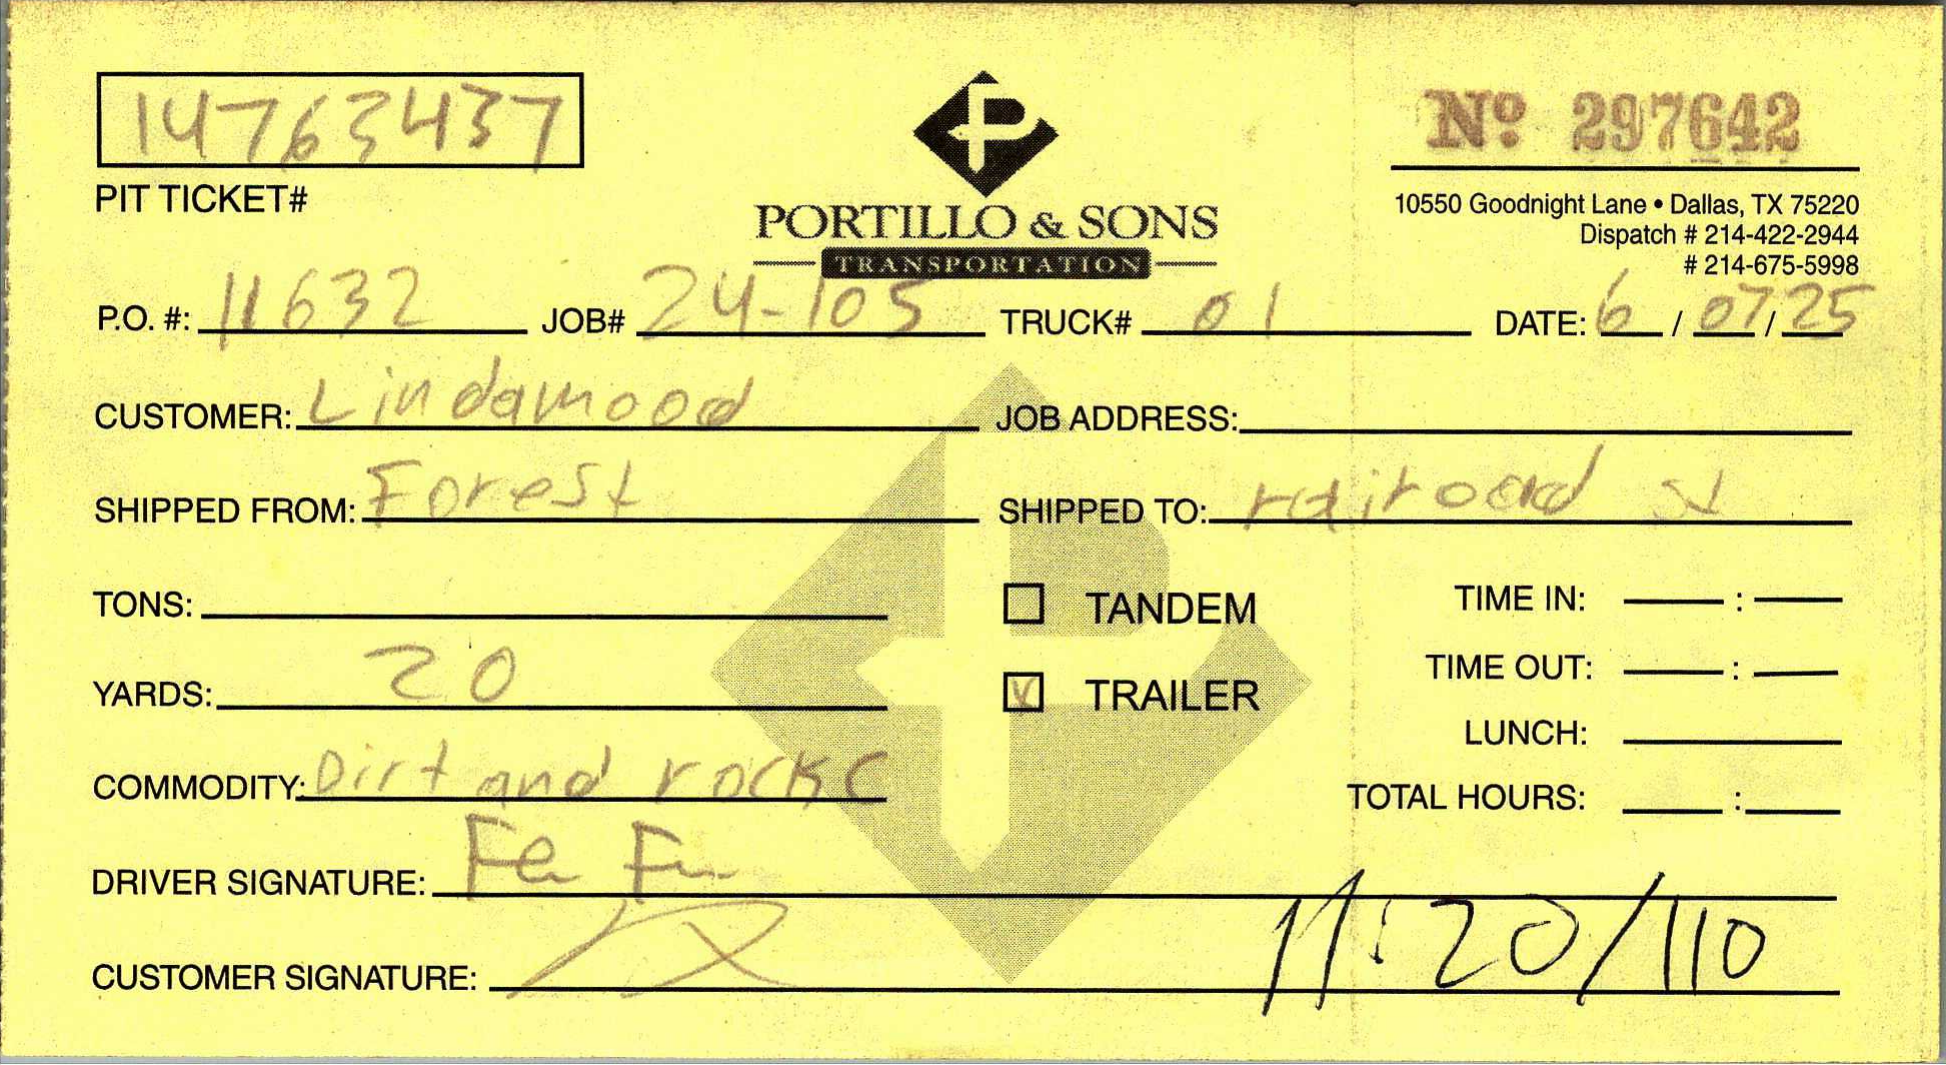 14763437
PIT TICKET#
PORTILLO & SONS
TRANSPORTATION
Nº 297642
10550 Goodnight Lane • Dallas, TX 75220
Dispatch # 214-422-2944
# 214-675-5998
P.O. #: 11632 JOB# 24-105 TRUCK# 01 DATE: 6 / 07 / 25
CUSTOMER: Lindamood JOB ADDRESS:
SHIPPED FROM: Forest SHIPPED TO: railroad st
TONS: TANDEM TIME IN: :
YARDS: 20 TRAILER TIME OUT: :
LUNCH:
COMMODITY: Dirt and rock C TOTAL HOURS: :
DRIVER SIGNATURE:
CUSTOMER SIGNATURE: 11:20/110